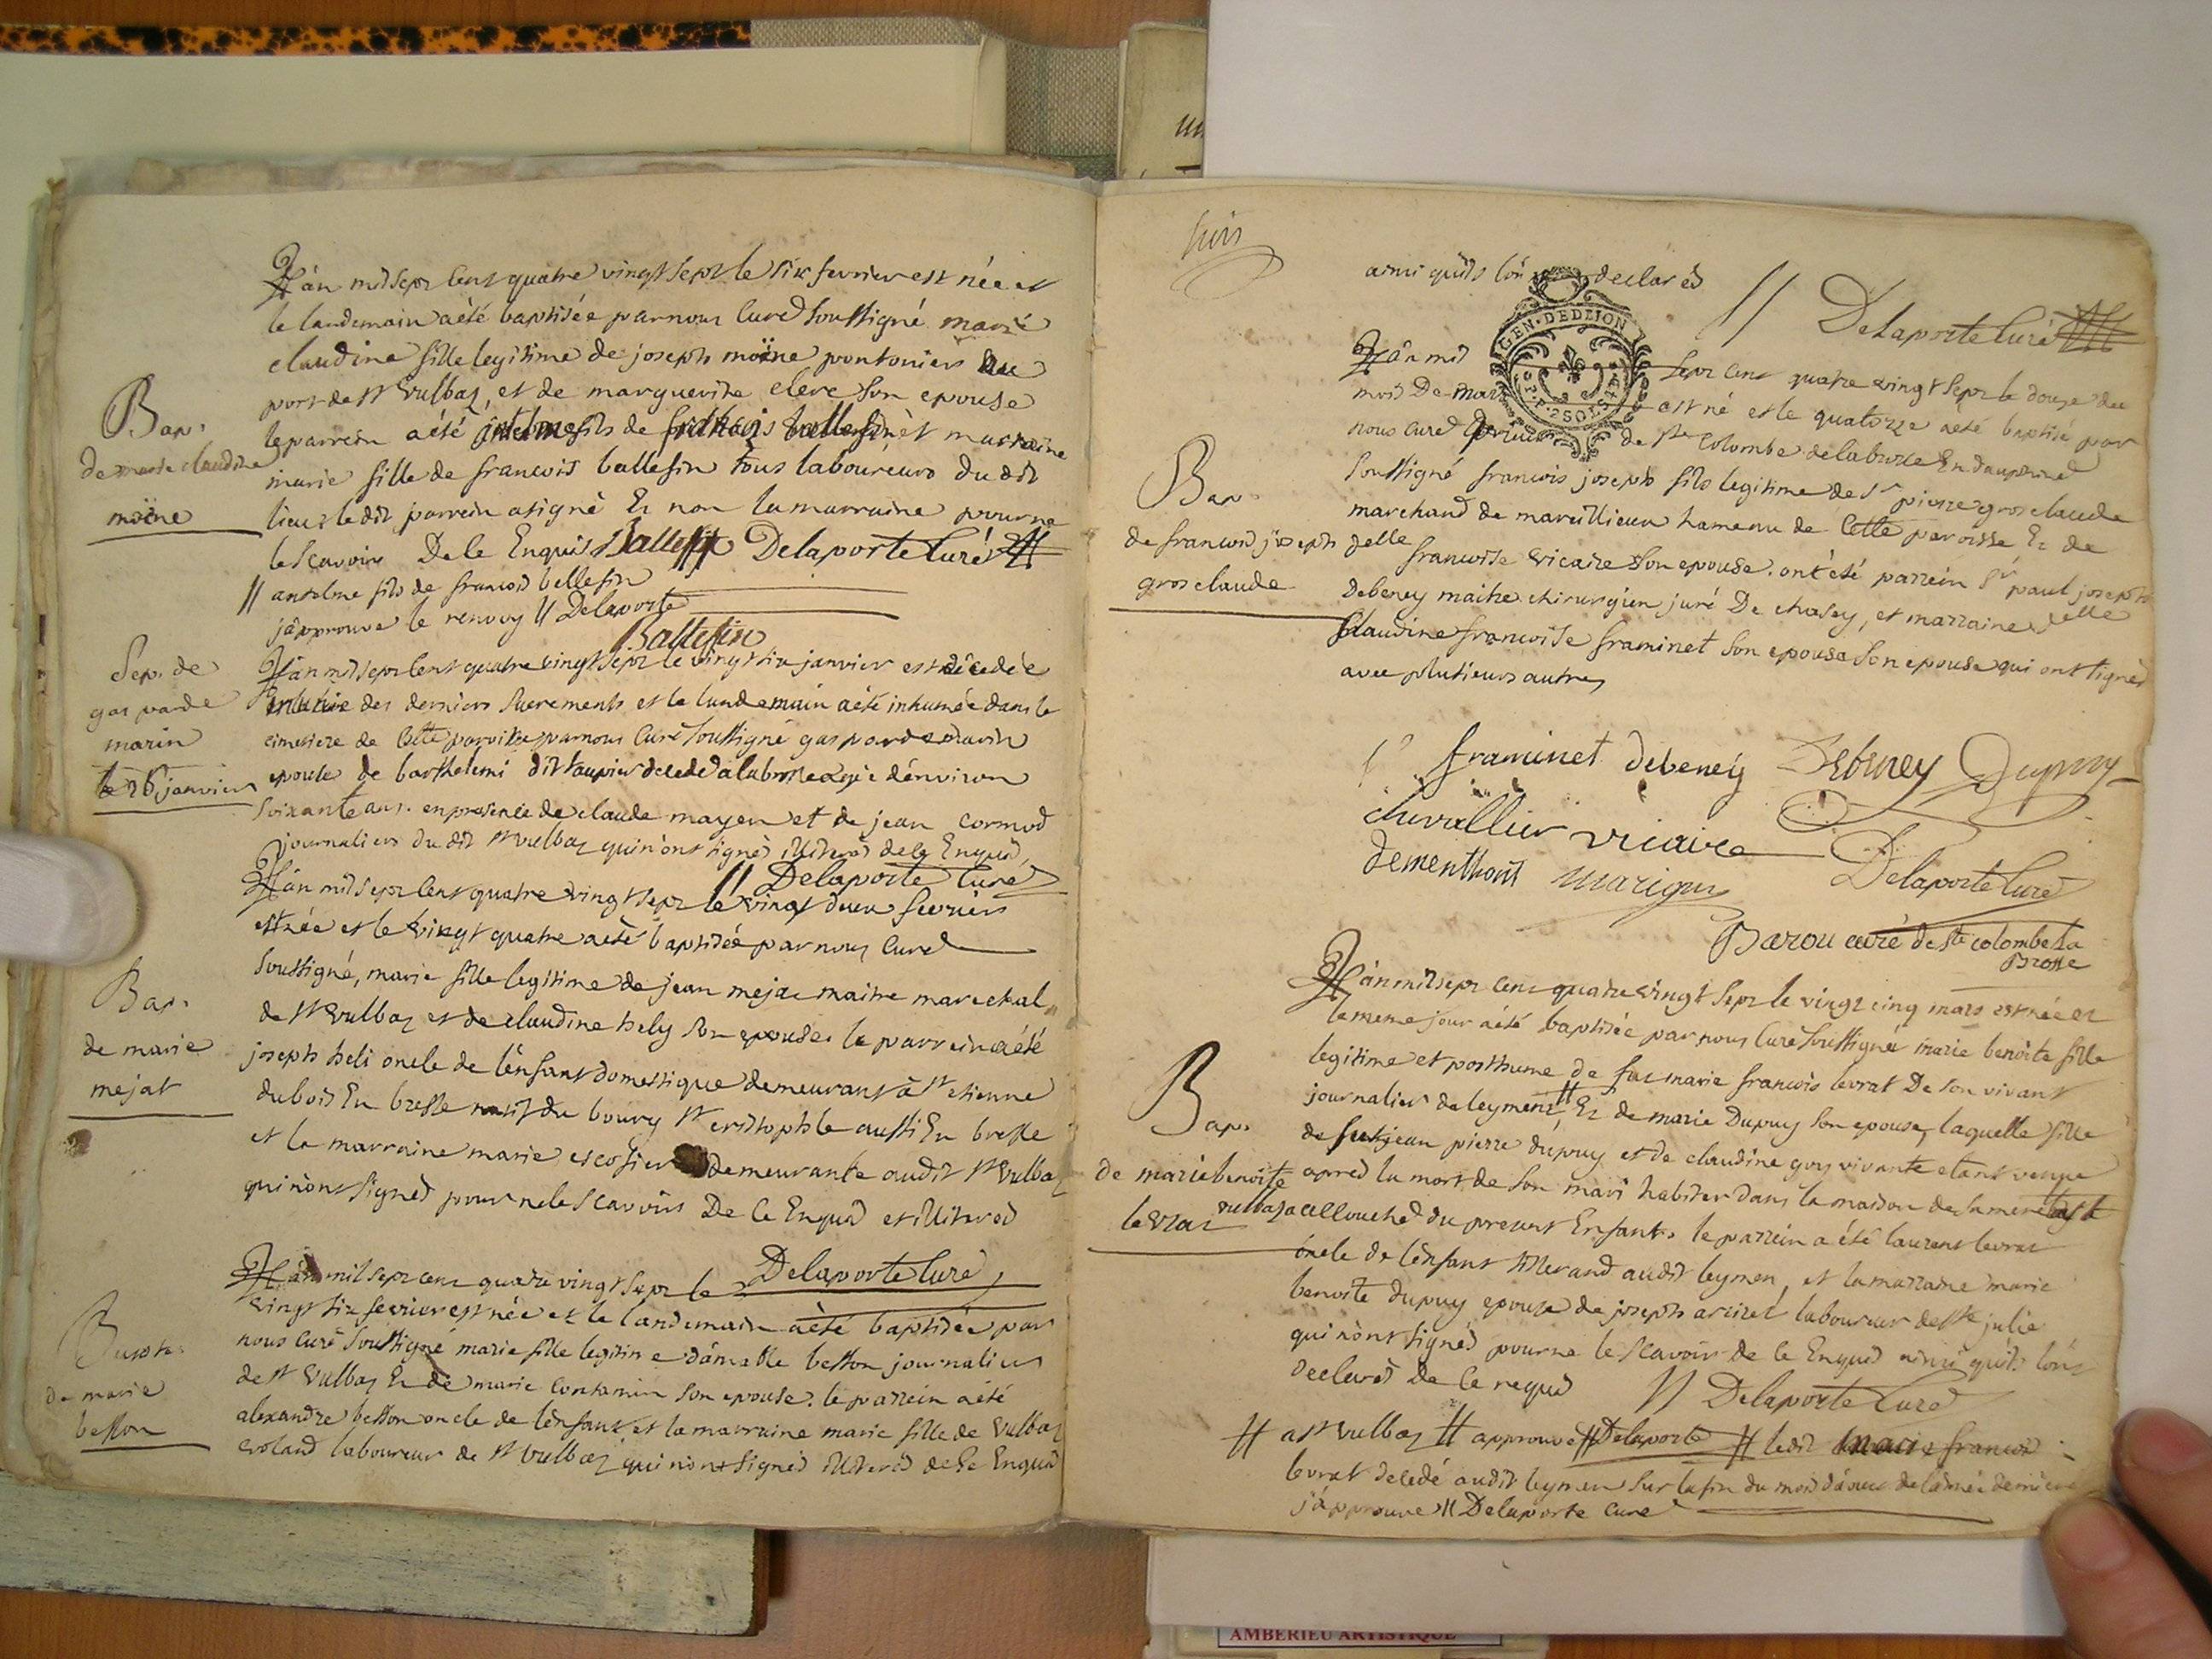 L'an mil sept cent quatre vingt sept le six fevrier est née et
le landemain a été baptisée par nous Curé soussigné marie
claudine fille legitime de joseph moïne pontonier au
port de st vulbaz, et de marguerite clerc son epouse
le parrein a été antelme fils de francois ballefin et marraine
marie fille de francois ballefin tous laboureurs du dit
lieu: le dit parrein a signé Et non la marraine pour ne
le scavoir De ce Enquis Ballefin Delaporte Curé
// antelme fils de francois bellefin
j'approuve le renvoy // Delaporte
Ballefin
Bap.
de marie claudine
moïne
L'an mil sept cent quatre vingt sept le vingt six janvier est décedée
munie des derniers sacrements et le landemain a été inhumée dans le
cimetiere de cette paroisse par nous Curé soussigné gasparde marin
epouse de barthelemi dit taupier decedé a la brosse agée d'environ
soixante ans. en presence de claude mayen et de jean cormod
journaliers du dit st vulbaz qui n'ont signés illiterés de ce Enquis
// Delaporte Curé
Sep. de
gasparde
marin
le 26 janvier
L'an mil sept cent quatre vingt sept le vingt deux fevrier
est née et le vingt quatre a été baptisée par nous Curé
soussigné, marie fille legitime de jean mejac maitre marechal
de st vulbaz et de claudine hely son epouse. le parrein a été
joseph heli oncle de l'enfant domestique demeurant à st etienne
dubois En bresse natif du bourg st cristophle aussi En bresse
et la marraine marie escosier demeurante au dit st vulbaz
qui n'ont signés pour ne le scavoir De ce Enquis et illiterés
Delaporte Curé
Bap.
de marie
mejat
L'an mil sept cent quatre vingt sept le
vingt six fevrier est née et le landemain a été baptisée par
nous curé soussigné marie fille legitime d'amable besson journalier
de st vulbaz Et de marie contamin son epouse. le parrein a été
alexandre besson oncle de l'enfant et la marraine marie fille de vulbaz
laboureur de st vulbaz qui n'ont signés illiterés de ce Enquis
de marie
besson
ainsi qu'ils l'on declarés
// Delaporte Curé
GEN. DE DIJON
2 SOLS
L'an mil sept cent quatre vingt sept le douze du
mois De mars est né et le quatorze a été baptisé par
nous curé de ste Colombe de la brosse En dauphiné
soussigné francois joseph fils legitime de sr pierre grosclaude
marchand de marcillieux hameau de cette paroisse Et de
delle francoise vicaire son epouse. ont été parrein sr paul joseph
debeney maitre chirurgien juré De chasey, et marraine delle
Claudine francoise framinet son epouse son epouse qui ont signés
avec plusieurs autres
Bap.
de francois joseph
grosclaude
framinet debeney Debeney Dupuy
chevallier vicaire
dementhont marigny Delaporte Curé
Barou curé de ste colombe La
Brosse
L'an mil sept cent quatre vingt sept le vingt cinq mars est née et
le meme jour a été baptisée par nous Curé soussigné marie benoite fille
legitime et posthume de feu marie francois levrat De son vivant
journalier de leyment, Et de marie Dupuy son epouse, laquelle fille
de feu jean pierre dupuy et de claudine guy vivante etant venue
apres la mort de son mari habiter dans la maison de sa mere
vulbaz a accouché du present Enfant. le parrein a été laurent levrat
oncle de l'enfant au dit leymen, et la marraine marie
benoite dupuy epouse de joseph laboureur de ste julie
qui n'ont signés pour ne le scavoir de ce Enquis ainsi qu'ils l'ont
declarés De ce requis // Delaporte Curé
Bap.
de marie benoite
levrat
# a st vulbaz # approuvé # Delaporte # le dit marie francois
levrat decedé au dit leymen sur la fin du mois d'aout de l'année derniere
j'approuve // Delaporte Curé
AMBERIEU ARTISTIQUE